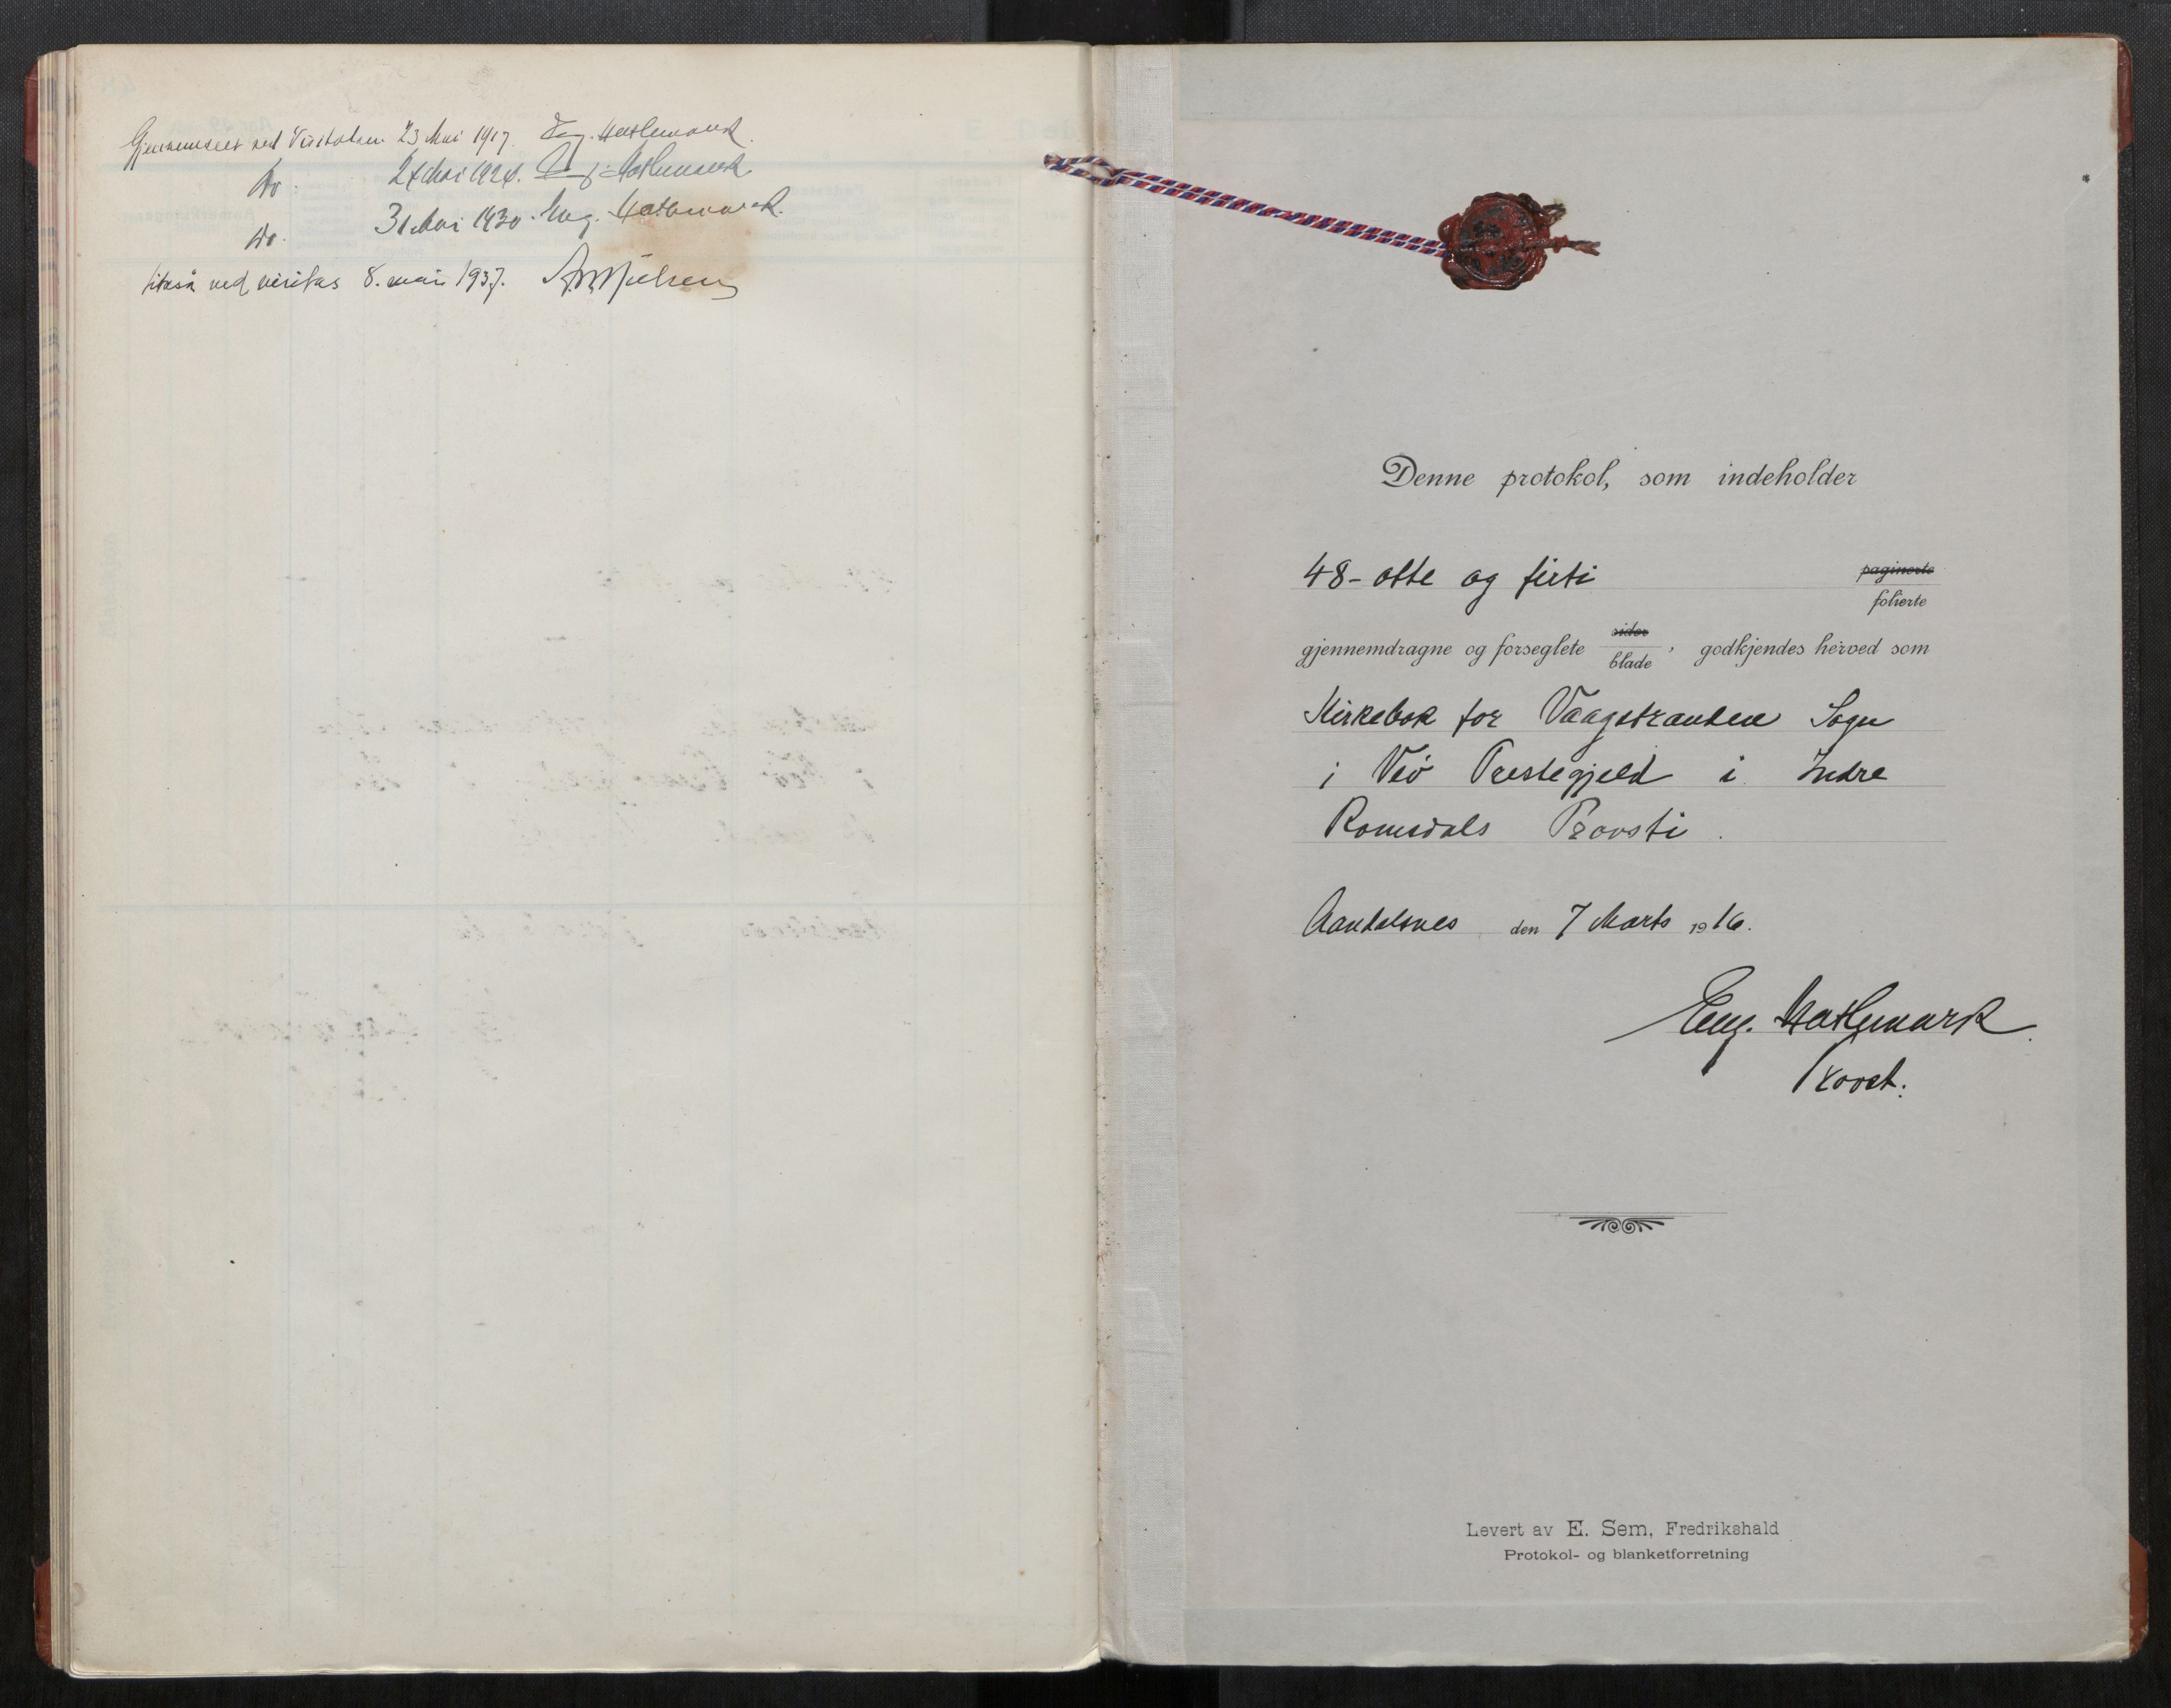 Gjennemseet ved Visitatsen 23 Mai 1917. Eug. Hathemark
Do. 24 Mai 1924. Eug. Hathemark
Do. 31 Mai 1930. Eug. Hathemark.
likeså ved visitas 8. mai 1937.
Denne protokol, som indeholder
48 - otte og firti paginerte
folierte
gjennemdragne og forseglete sider
blade, godkjendes herved som
Kirkebok for Vaagstranden Sogn
i Veö Prestegjeld i Indre
Romsdals Provsti.
Aandalsnes den 7 Marts 1916.
Eug. Hathemark
Provst.
Levert av E. Sem, Fredrikshald
Protokol- og blanketforretning